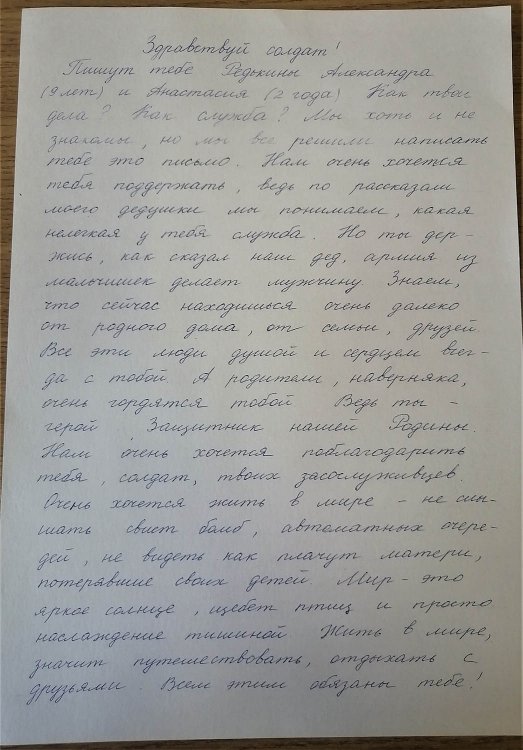 Здравствуй солдат!
Пишут тебе Редькины Александра
(9 лет) и Анастасия (2 года) Как твои
дела? Как служба? Мы хоть и не
знакомы, но мы все решили написать
тебе это письмо. Нам очень хочется
тебя поддержать, ведь по рассказам
моего дедушки мы понимаем, какая
нелегкая у тебя служба. Но ты дер-
жись, как сказал наш дед, армия из
мальчишек делает мужчину. Знаем,
что сейчас находишься очень далеко
от родного дома, от семьи, друзей.
Все эти люди душой и сердцем всег-
да с тобой. А родители, наверняка,
очень гордятся тобой Ведь ты -
герой Защитник нашей Родины.
Нам очень хочется поблагодарить
тебя, солдат, твоих засослуживцев.
Очень хочется жить в мире - не слы-
шать свист бомб, автоматных очере-
дей, не видеть как плачут матери,
потерявшие своих детей. Мир - это
яркое солнце, щебет птиц и просто
наслаждение тишиной Жить в мире,
значит путешествовать, отдыхать с
друзьями. Всем этим обязаны тебе!